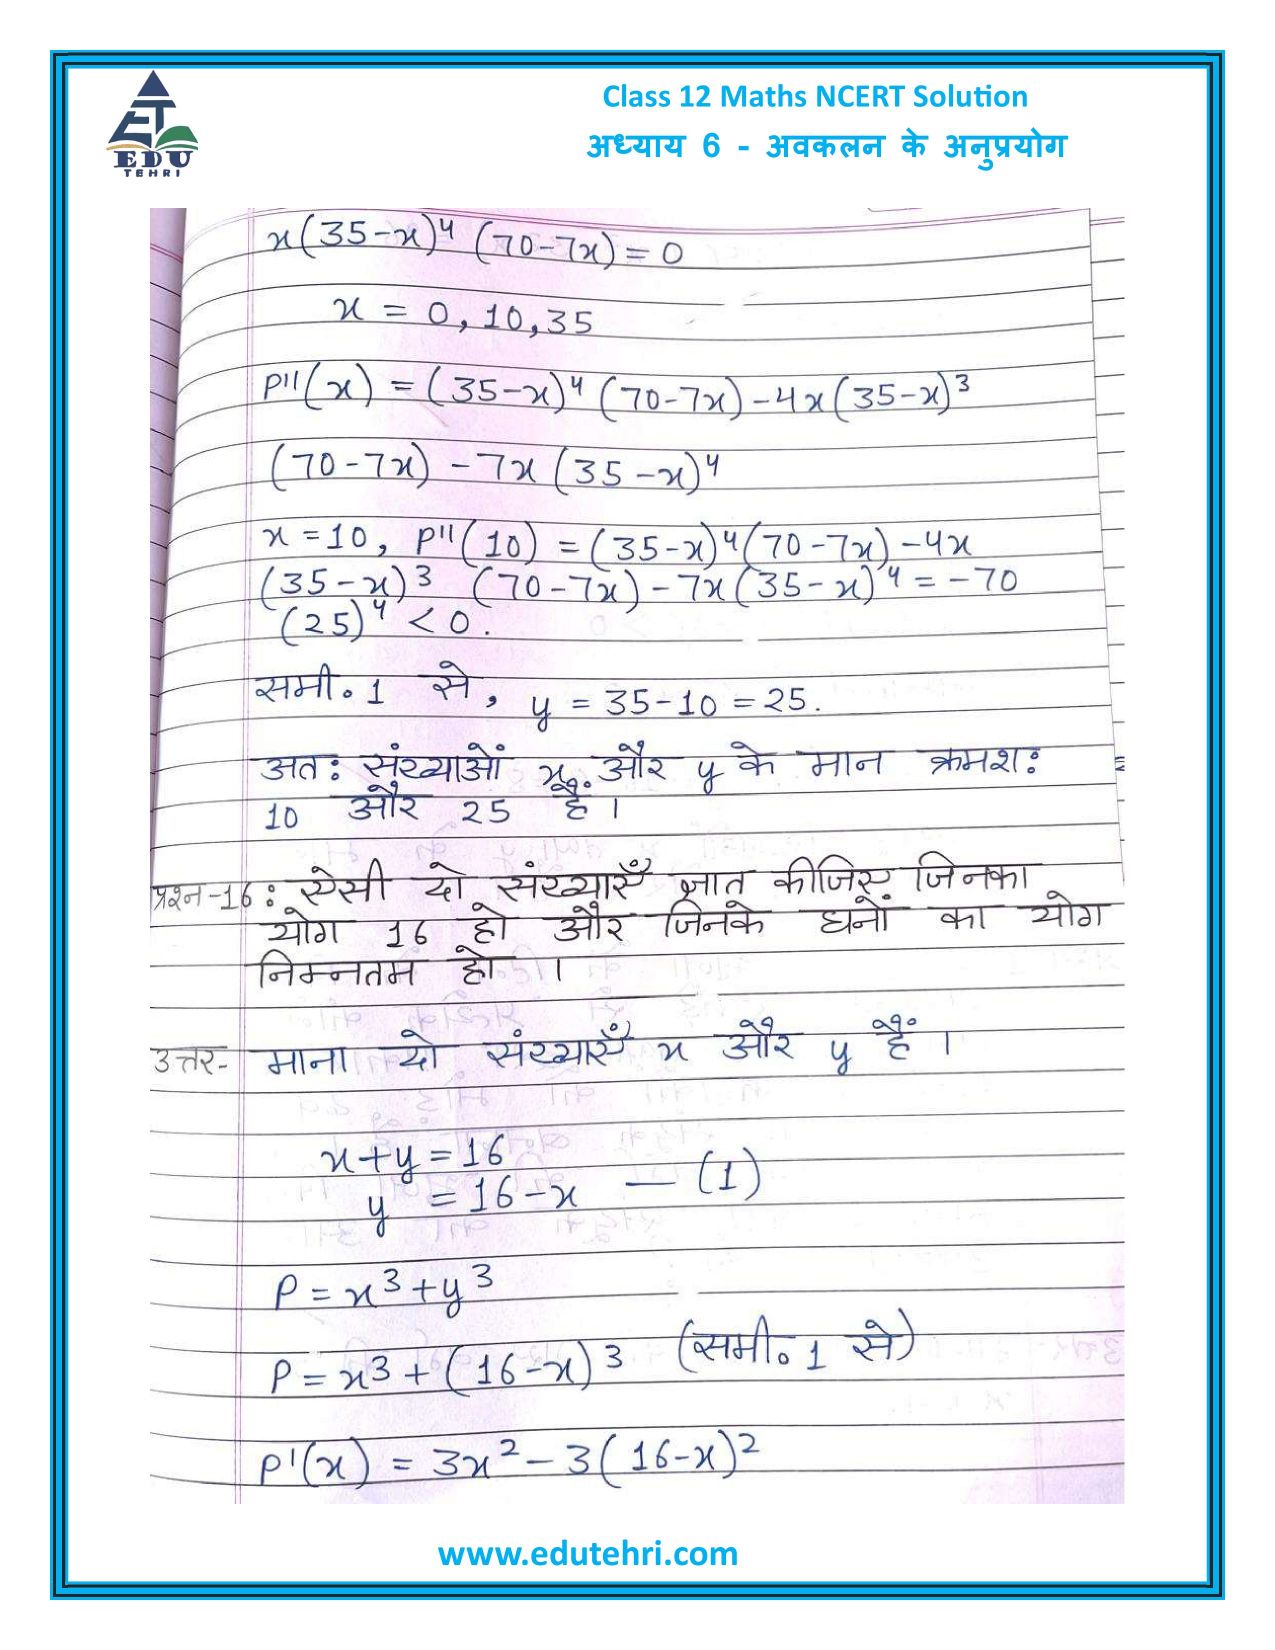 ET
EDU
TEHRI
Class 12 Maths NCERT Solution
अध्याय 6 - अवकलन के अनुप्रयोग
x(35-x)⁴ (70-7x) = 0
x = 0, 10, 35
P''(x) = (35-x)⁴ (70-7x) - 4x(35-x)³
(70-7x) - 7x (35-x)⁴
x = 10, P''(10) = (35-x)⁴(70-7x) - 4x
(35-x)³ (70-7x) - 7x(35-x)⁴ = -70
(25)⁴ < 0.
समी. 1 से, y = 35-10 = 25.
अत: संख्याओं x और y के मान क्रमश:
10 और 25 हैं।
प्रश्न-16: ऐसी दो संख्याएँ ज्ञात कीजिए जिनका
योग 16 हो और जिनके घनों का योग
निम्नतम हो।
उत्तर- माना दो संख्याएँ x और y हैं।
x+y = 16
y = 16-x — (1)
P = x³+y³
P = x³ + (16-x)³ (समी. 1 से)
P'(x) = 3x² - 3(16-x)²
www.edutehri.com